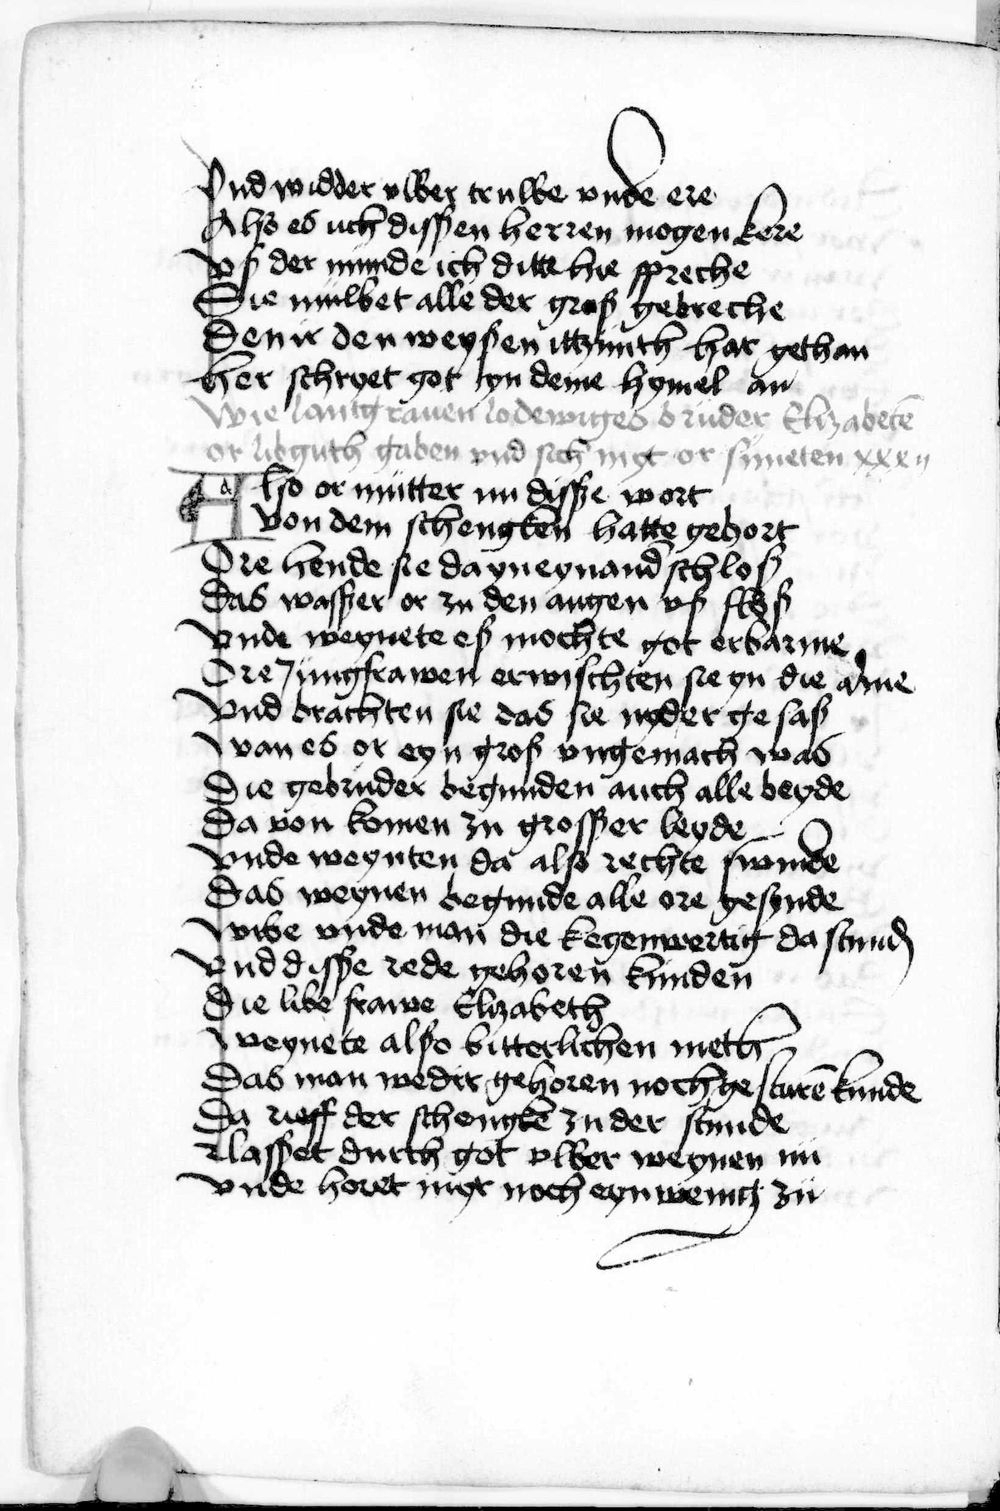 Vnd widder vlber trulbe vnde ere
Also es uch disßen herren mogen kere
Vß der munde ich ditte hie spreche
Die mulbet alle der groß gebreche
Den ir den weyßen ittzunth hat gethan
Her schryet got yn deme hymel an
Wie lantgrauen lodewiges bruder Elizabetē
or libguth gaben vnd sich myt or suneten xxxij
Also or mütter nu disße wort
von dem schengken hatte gehort
Ore hende sie da yn eynand schloß
Das wasßer or zu den augen vß floß
Vnde weynete eß mochte got erbarme
Ore Jungfrawen erwischten sie yn die arme
Vnd brachten sie das sie nyder gesaß
Wan es or eyn groß vngemach was
Die gebruder begunden auch alle beyde
Da von komen zu grosßer leyde
Vnde weynten da also rechte swinde
Das weynen begunde alle ore gesynde
Wibe vnde man die kegenwertig da stund
Vnd disße rede gehoren kunden
Die libe frawe Elizabeth
Weynete also bitterlichen meth
Das man weder gehoren noch gesturē kunde
Da rieff der schengkē zu der stunde
Nu lasßet durch got vlber weynen nu
Vnde horet myr noch eyn wenig zu